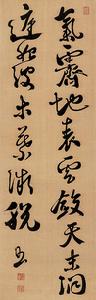 氣霽地表雲斂天末洞
庭始波木葉微脱